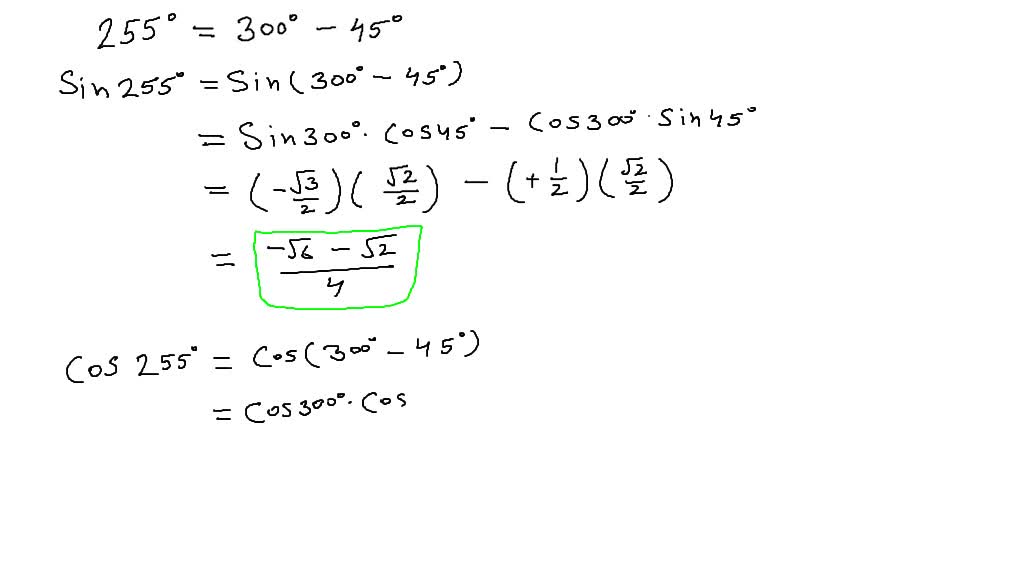 255° = 300° - 45°
Sin 255° = Sin(300° - 45°)
= Sin300°. Cos45° - Cos300°. Sin45°
= (-√3/2)(√2/2) - (+1/2)(√2/2)
= (-√6 - √2)/4
Cos 255° = Cos(300° - 45°)
= Cos300°. Cos